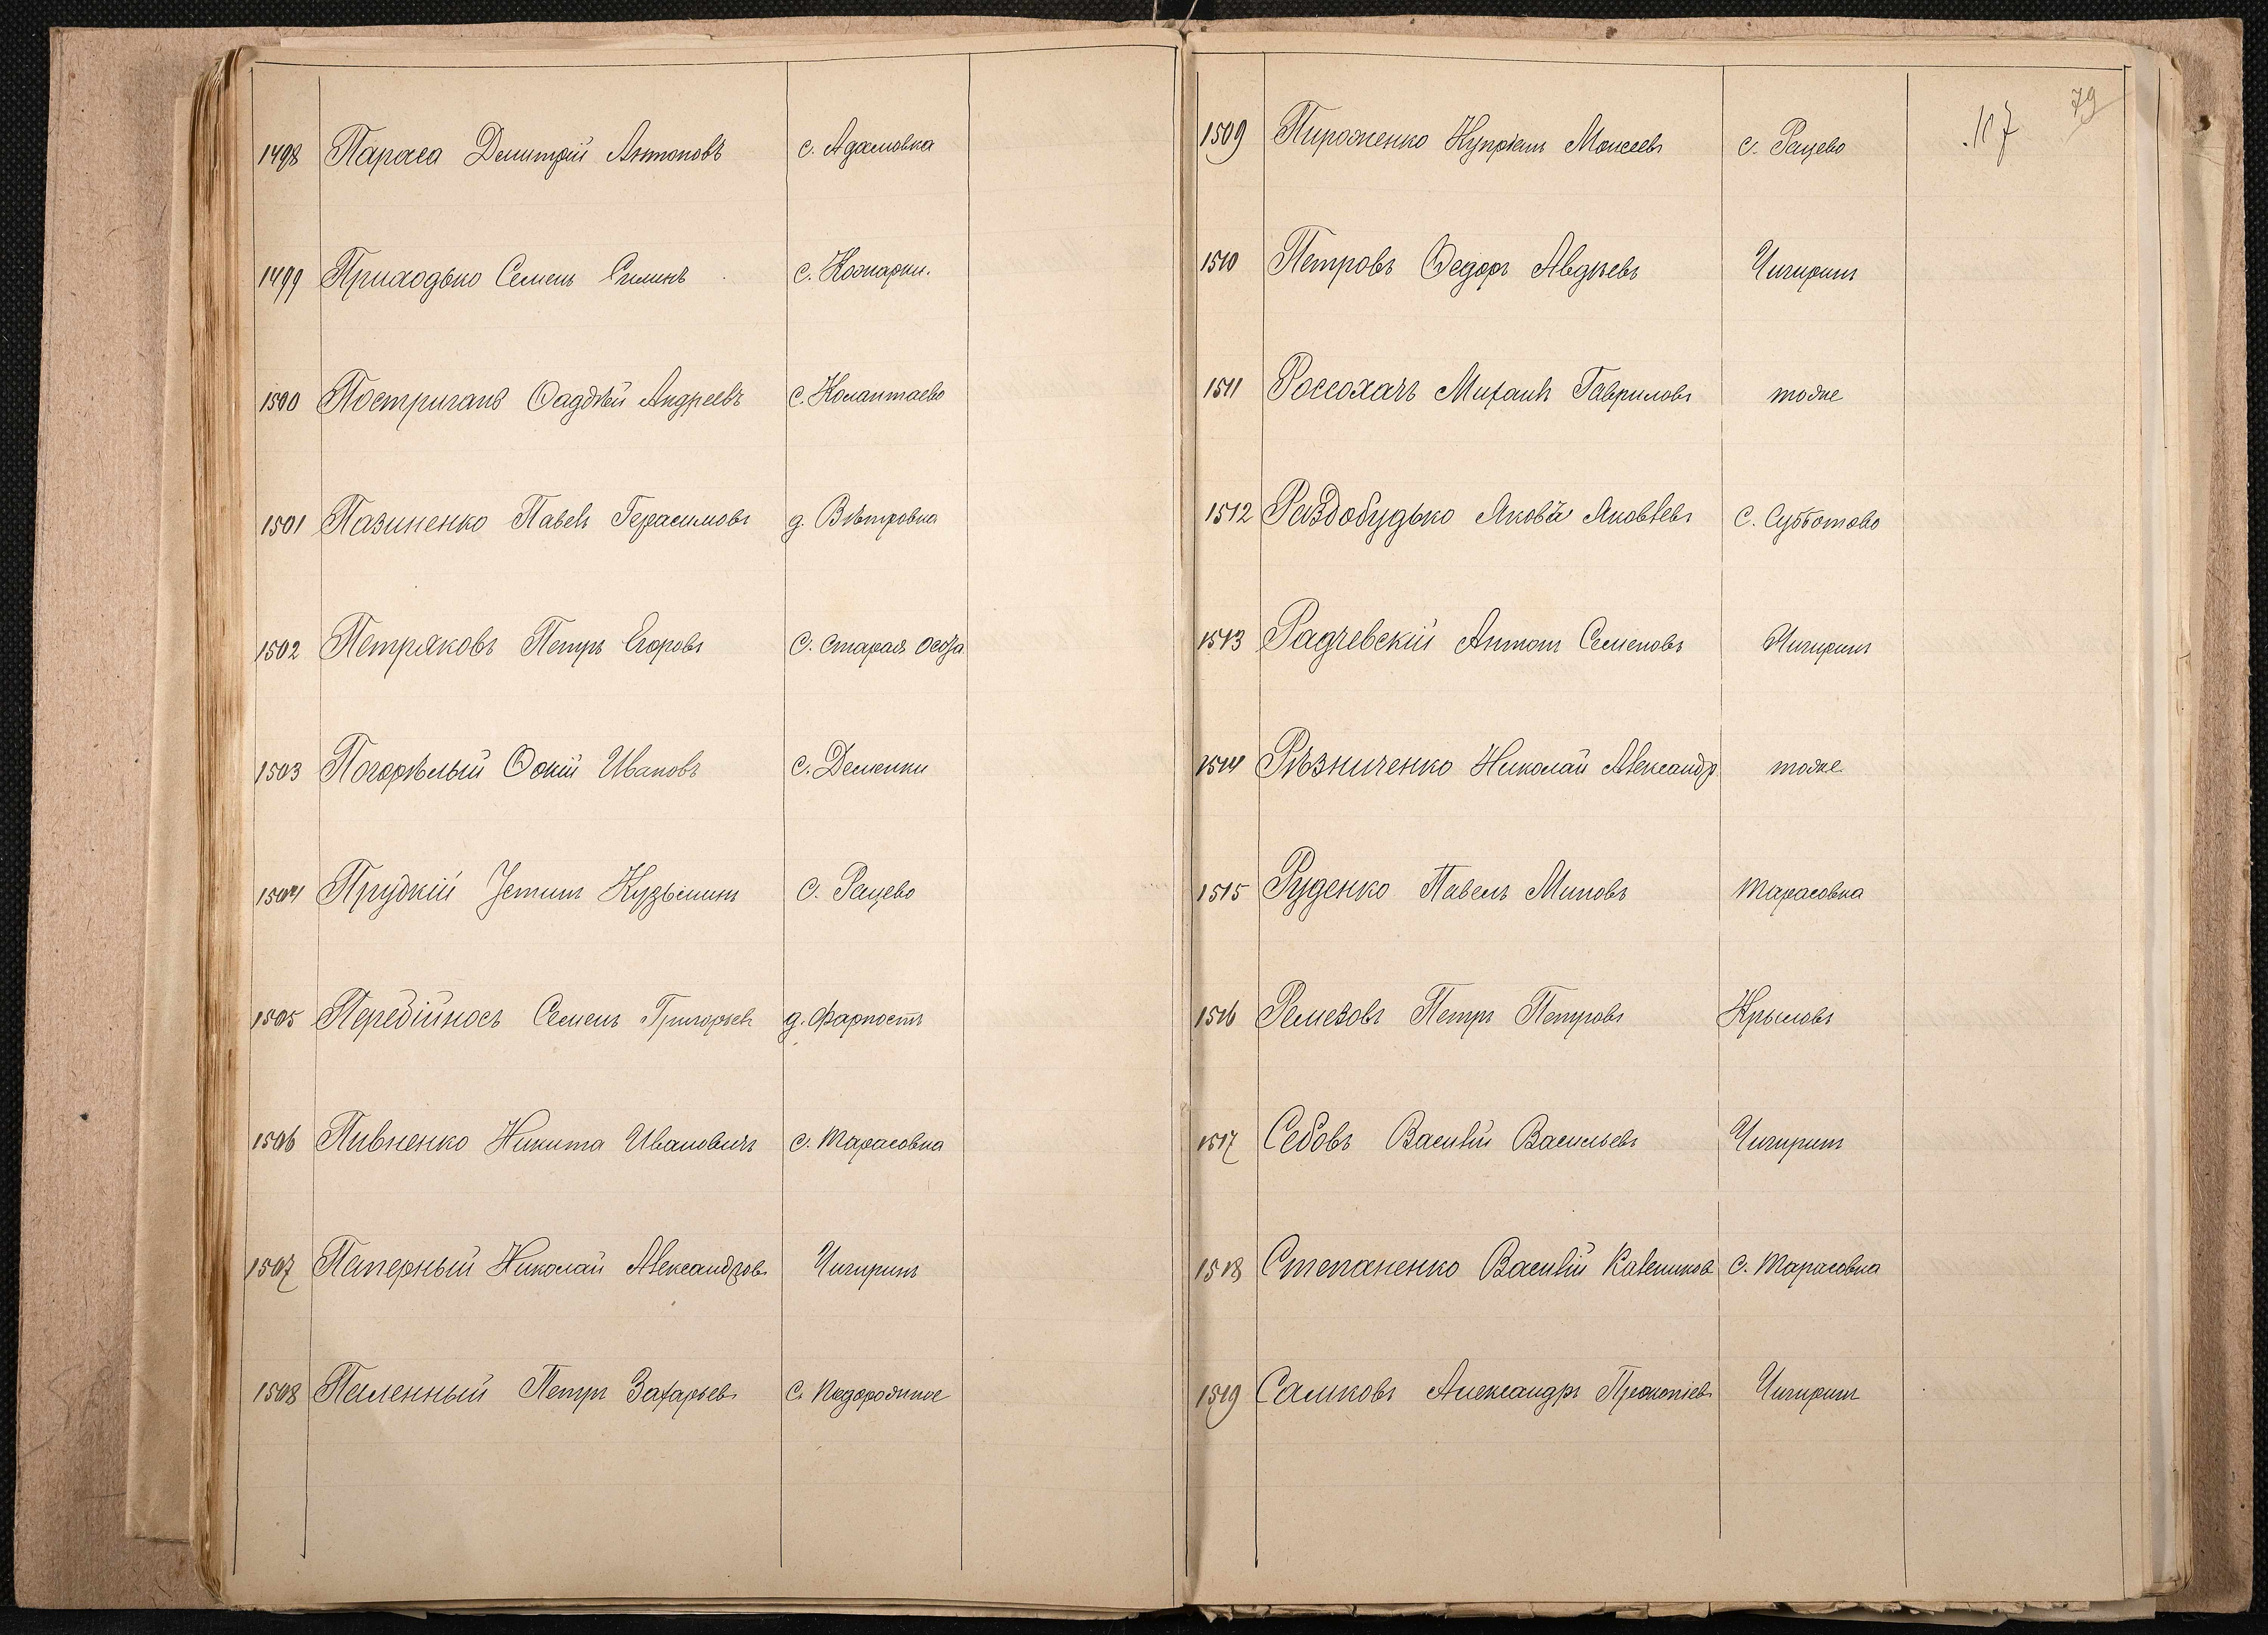 1498 Параса Димитрій Антоновъ с. Адамовка
1499 Приходько Семенъ Силинъ с. Кожарки.
1500 Постригань Фаддѣй Андреевъ с. Калантаево
1501 Пазиненко Павелъ Герасимовъ д. Вѣтровка
1502 Петряковъ Петръ Егоровъ с. Старая Осота
1503 Погорѣлый Фокій Ивановъ с. Деменки
1504 Прудкій Устинъ Кузьминъ с. Рацево
1505 Перебійносъ Семенъ Григорьевъ д. Фарпостъ
1506 Пивненко Никита Ивановичъ с. Тарасовка
1507 Паперный Николай Александровъ Чигиринъ
1508 Паленный Петръ Захарьевъ с. Подорожное
79
117
1509 Пироженко Купріянъ Моисеевъ с. Рацево
1510 Петровъ Федоръ Авдѣевъ Чигиринъ
1511 Россохачъ Михаилъ Гавриловъ тоже
1512 Раздобудько Яковъ Яковлевъ с. Субботово
1513 Радчевскій Антонъ Семеновъ Чигиринъ
1514 Рѣзниченко Николай Александр тоже
1515 Руденко Павелъ Миновъ Тарасовка
1516 Ремезовъ Петръ Петровъ Крыловъ
1517 Седовъ Василій Васильевъ Чигиринъ
1518 Степаненко Василій с. Тарасовка
1519 Самковъ Александръ Прокопіевъ Чигиринъ